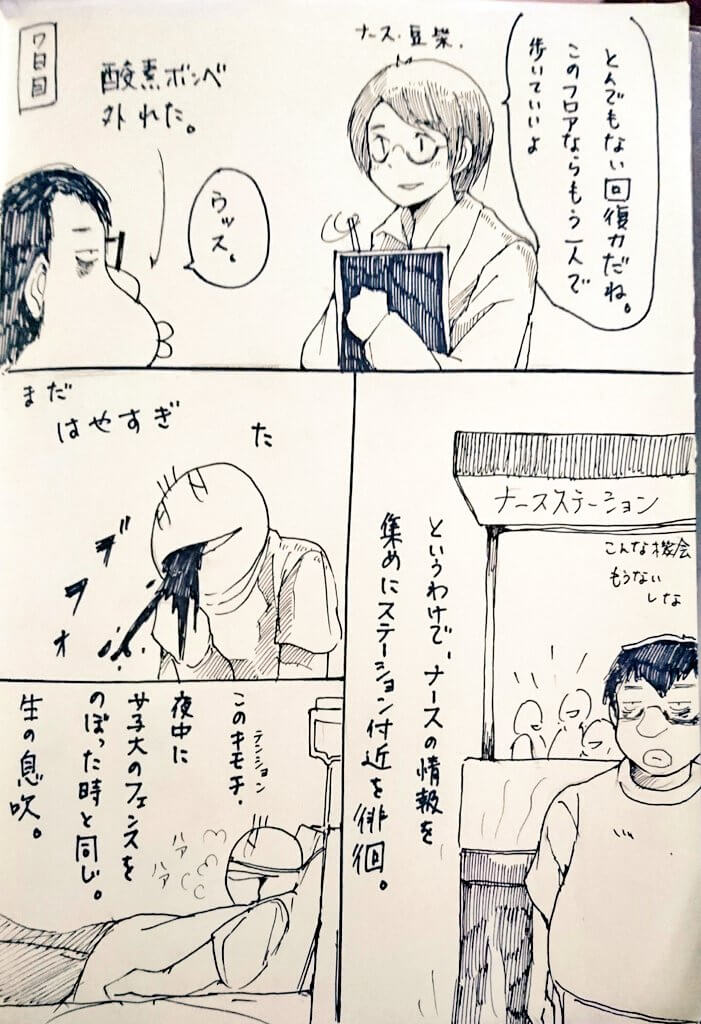 とんでもない回復力だね。
このフロアならもう一人で
歩いていいよ
ナース・豆柴。
酸素ボンベ
外れた。
ウッス。
7日目
ナースステーション
こんな機会
もうない
しな
というわけで、ナースの情報を
集めにステーション付近を徘徊。
まだ
はやすぎ
た
ヴォォ
テンション
このキモチ、
夜中に
女子大のフェンスを
のぼった時と同じ。
生の息吹。
ハァ
ハァ